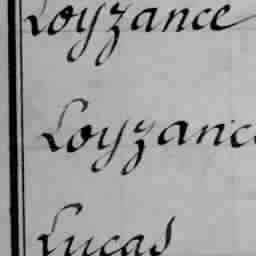 Loyzance
Loyzance
Lucas